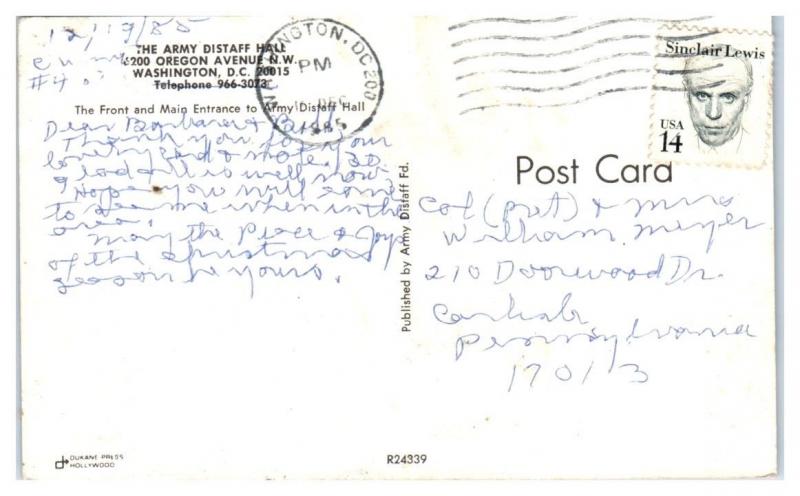 12/19/85
THE ARMY DISTAFF HALL
6200 OREGON AVENUE N.W.
WASHINGTON, D.C. 20015
Telephone 966-3073
#40
The Front and Main Entrance to Army Distaff Hall
Dear Barbara & Bill,
Thank you for your
lovely card & note.
glad all is well now.
I hope you will come
to see me when in the
area.
May the Peace & Joy
of the Christmas
season be yours.
DUKANE PRESS
HOLLYWOOD
Published by Army Distaff Fd.
R24339
WASHINGTON, DC 200
PM
DEC
1985
Sinclair Lewis
USA
14
Post Card
Col (ret) & Mrs
William Meyer
210 Doorwood Dr.
Carlisle
Pennsylvania
17013